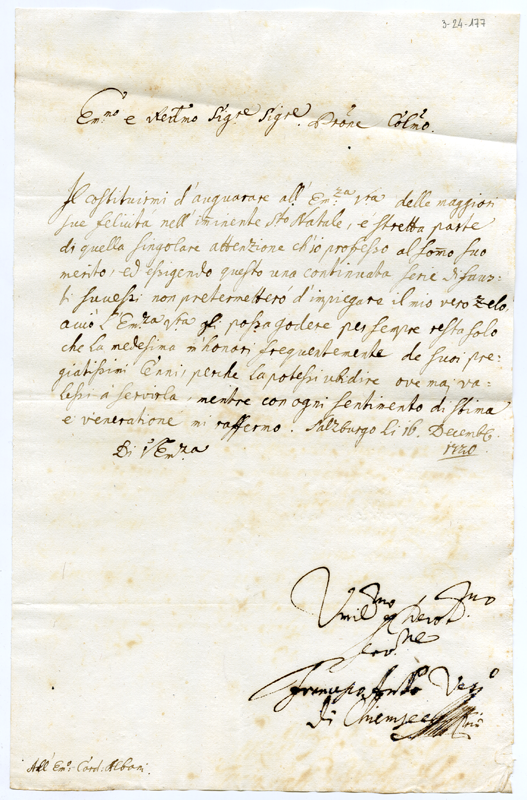 3-24-177
Em.mo e Re.dmo Sig.re Sig.re Prone Colmo.
Il costituirmi d'augurare all' Em.za Vra delle maggiori
sue felicità nell'imminente Sto Natale, è stretta parte
di quella singolare attenzione ch'io professo al somo suo
merito, ed esigendo questo una continuata serie di faus=
ti successi non pretermetterò d'impiegare il mio vero zelo
acciò l'Em.za Vra possa godere per sempre resta solo
che la medesima m'honori frequentemente de suoi pre=
giatissimi Cenni, perche la potessi ubidire ove mai va=
lessi a servirla, mentre con ogni sentimento di stima
e veneratione mi raffermo. Salzburgo Li 16. Decemb.
1720.
Di V. Em.za
Umil.mo Devot.mo
Serv.re
Vesc.o
di Chiemsee
All' Em.o Card: Albani.